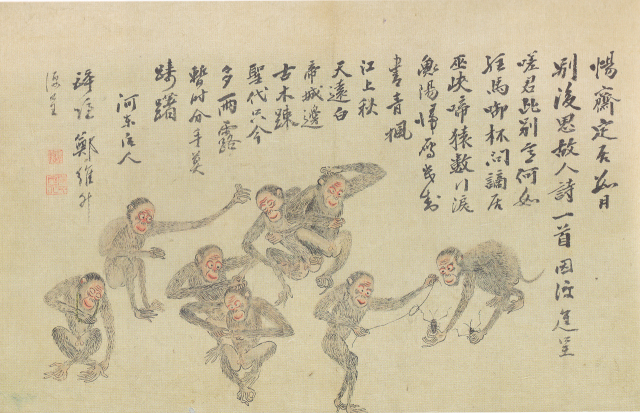 暢齋定居數日
別後思故人詩一首因
嗟君此別意何如
駐馬啣杯問謫居
巫峽啼猿數行淚
衡陽歸雁幾封
書青楓
江上秋
天遠白
帝城邊
古木疎
聖代只今
多雨露
暫時分手莫
躊躇
河東人
鄭維